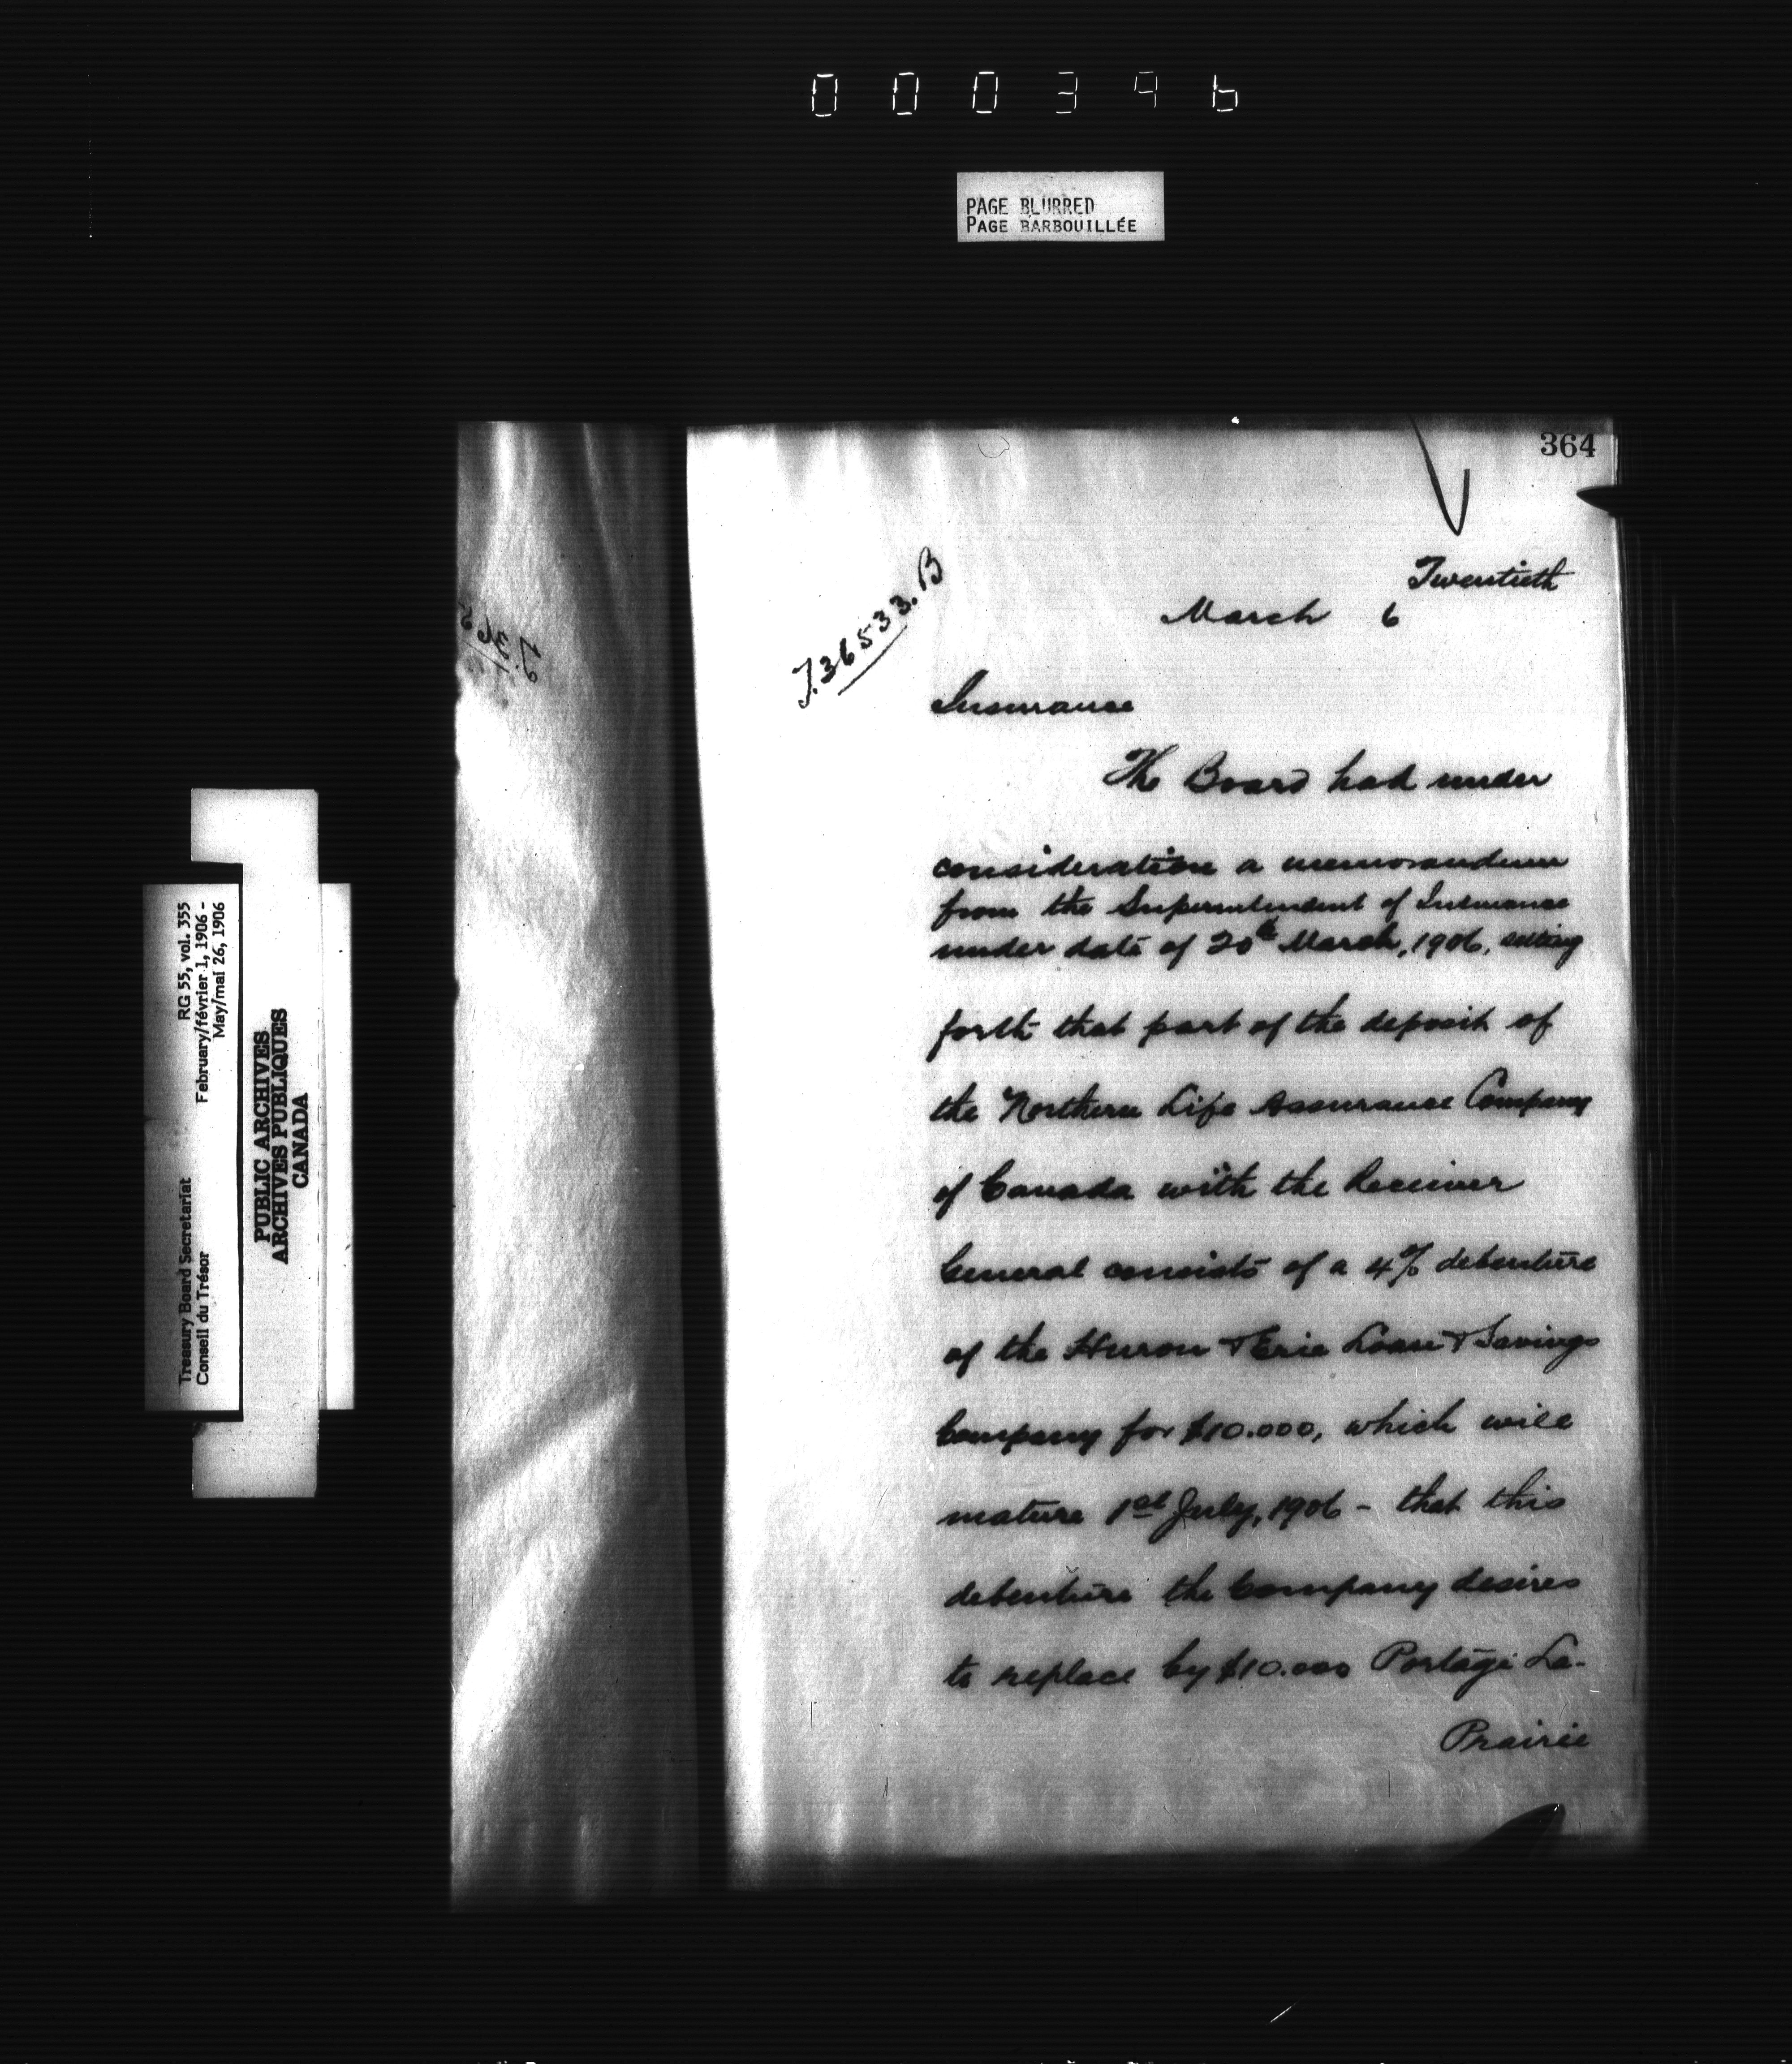 000396
PAGE BLURRED
PAGE BARBOUILLÉE
364
Twentieth
March 6
T.36533.B
Insurance
The Board had under
consideration a memorandum
from the Superintendent of Insurance
under date of 20th March, 1906, setting
forth that part of the deposit of
the Northern Life Assurance Company
of Canada with the Receiver
General consists of a 4% debenture
of the Huron & Erie Loan & Savings
Company for $10.000, which will
mature 1st July, 1906 - that this
debenture the Company desires
to replace by $10.000 Portage La-
Prairie
Treasury Board Secretariat
Conseil du Trésor
RG 55, vol. 355
February/février 1, 1906 -
May/mai 26, 1906
PUBLIC ARCHIVES
ARCHIVES PUBLIQUES
CANADA